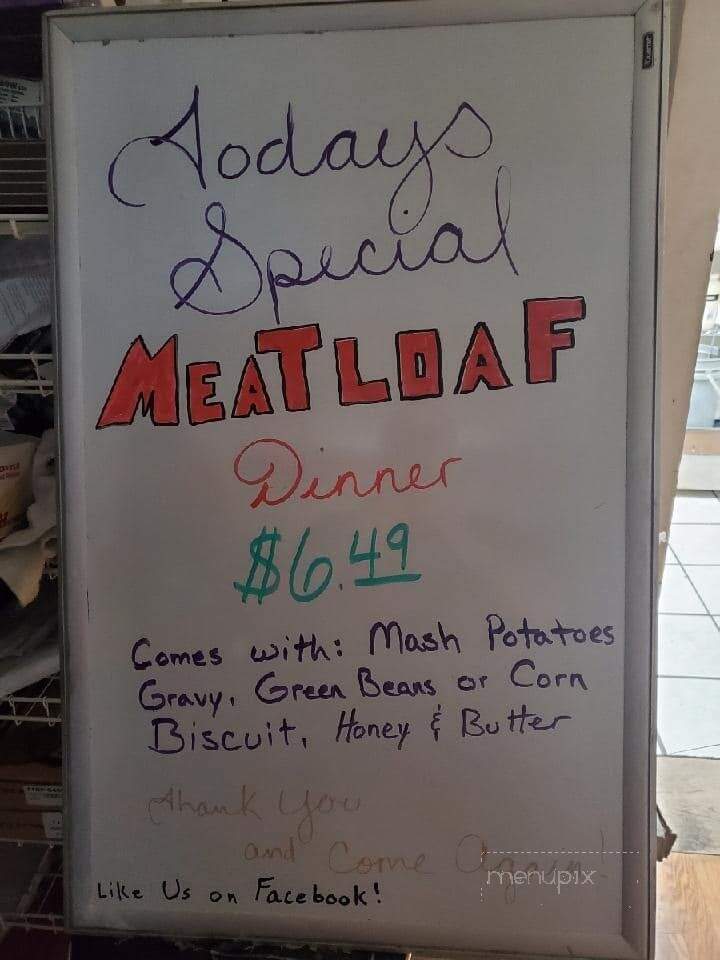 Todays
Special
MEATLOAF
Dinner
$6.49
Comes with: Mash Potatoes
Gravy, Green Beans or Corn
Biscuit, Honey & Butter
Thank You
and Come Again!
Like Us on Facebook!
menupix